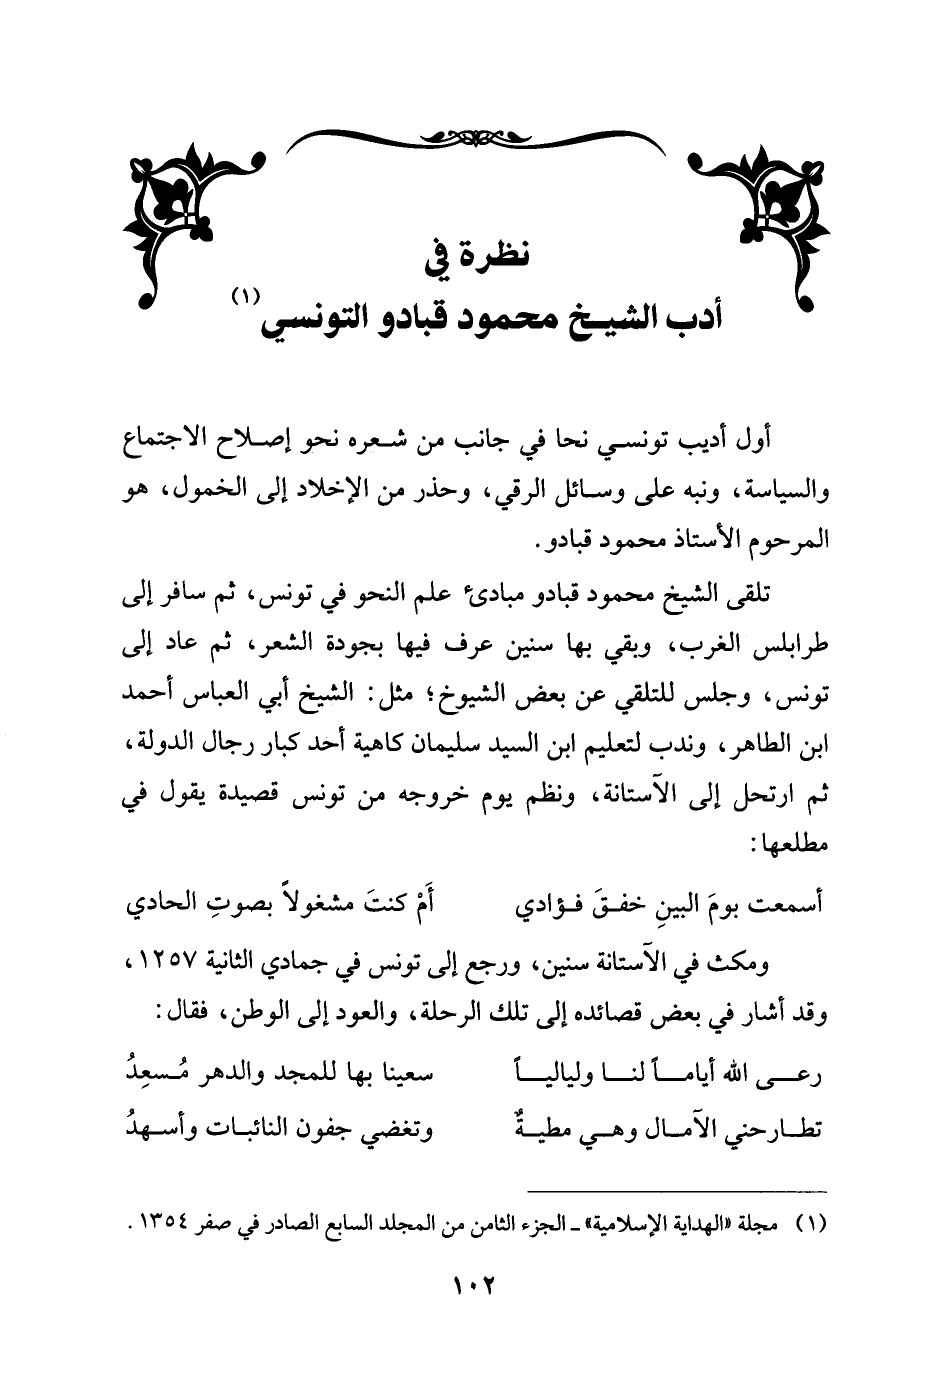 نظرة في
أدب الشيخ محمود قبادو التونسي (١)
أول أديب تونسي نحا في جانب من شعره نحو إصلاح الاجتماع
والسياسة، ونبه على وسائل الرقي، وحذر من الإخلاد إلى الخمول، هو
المرحوم الأستاذ محمود قبادو.
تلقى الشيخ محمود قبادو مبادئ علم النحو في تونس، ثم سافر إلى
طرابلس الغرب، وبقي بها سنين عرف فيها بجودة الشعر، ثم عاد إلى
تونس، وجلس للتلقي عن بعض الشيوخ؛ مثل: الشيخ أبي العباس أحمد
ابن الطاهر، وندب لتعليم ابن السيد سليمان كاهية أحد كبار رجال الدولة،
ثم ارتحل إلى الآستانة، ونظم يوم خروجه من تونس قصيدة يقول في
مطلعها:
أسمعت بومَ البينِ خفقَ فؤادي أَمْ كنتَ مشغولاً بصوتِ الحادي
ومكث في الآستانة سنين، ورجع إلى تونس في جمادي الثانية ١٢٥٧،
وقد أشار في بعض قصائده إلى تلك الرحلة، والعود إلى الوطن، فقال:
رعى الله أياماً لنا وليالياً سعينا بها للمجد والدهر مُسعِدُ
تطارحني الآمال وهي مطيةٌ وتغضي جفون النائبات وأسهدُ
(١) مجلة «الهداية الإسلامية» ـ الجزء الثامن من المجلد السابع الصادر في صفر ١٣٥٤.
١٠٢